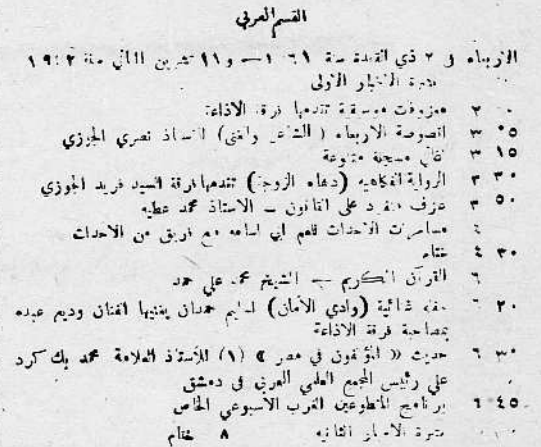 القسم العربي
الاربعاء في ٢ ذي القعدة سنة ١٣٦١ — و ١١ تشرين الثاني سنة ١٩٤٢
نشرة الاخبار الاولى
٢ معزوفات موسيقية تقدمها فرقة الاذاعة
٣ ٠٥ اقصوصة الاربعاء ( الشاعر والمغني ) للاستاذ نصري الجوزي
٣ ١٥ اغاني مسجلة متنوعة
٣ ٣٠ الرواية الفكاهية (دهاء الزوجة) تقدمها فرقة السيد فريد الجوزي
٣ ٥٠ عزف منفرد على القانون — الاستاذ محمد عطيه
٤ مسامرات الاحداث للعم ابي اسامه مع فريق من الاحداث
٤ ٣٠ ختام
٦ القرآن الكريم — الشيخ محمد علي حمد
٦ ٢٠ حفلة غنائية (وادي الأمان) لسليم حمدان يغنيها الفنان وديم عبده
بمصاحبة فرقة الاذاعة
٦ ٣٠ حديث « المؤلفون في مصر » (١) للأستاذ العلامة محمد بك كرد
علي رئيس المجمع العلمي العربي في دمشق
٦ ٤٥ برنامج المتطوعين العرب الاسبوعي الخاص
نشرة الاخبار الثانية ٨ ختام